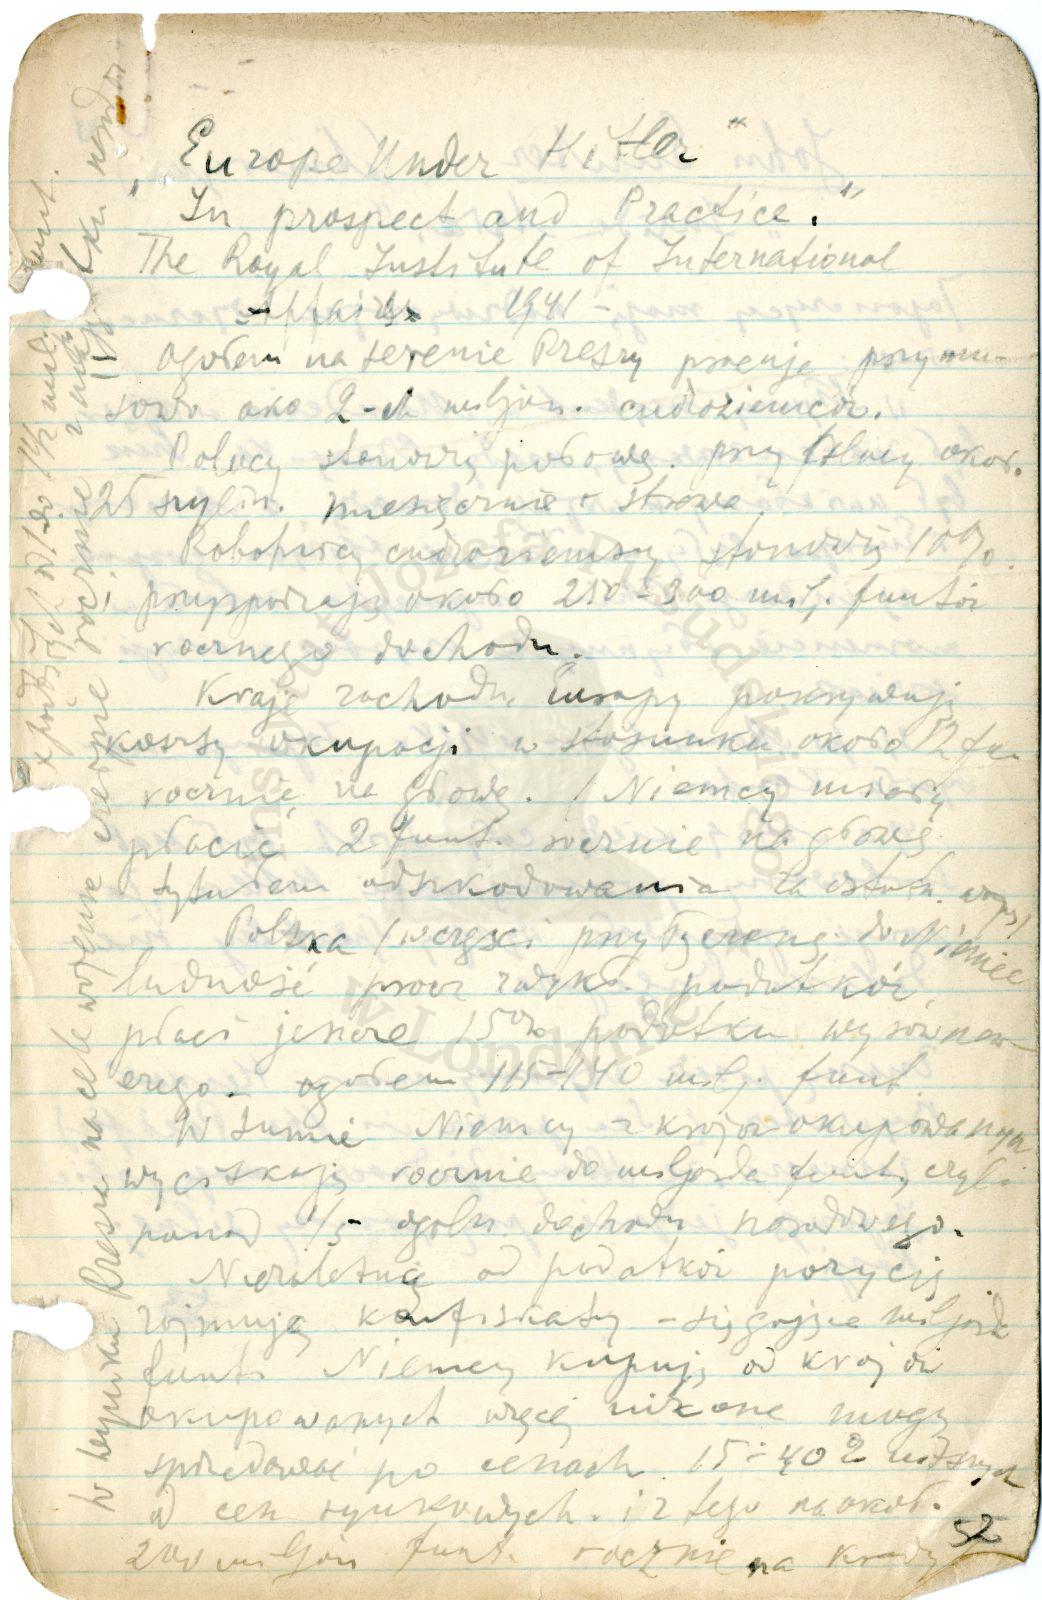 "Europe Under Hitler"
"In prospect and Practice."
The Royal Institute of International
Affairs 1941 –
Ogółem na terenie Rzeszy pracuje przymu-
sowo oko 2-ch miljon. cudzoziemców.
Polacy stanowią połowę. przy płacy okoł.
25 szylin. miesięcznie + strawa.
Robotnicy cudzoziemscy stanowią 10%
i przysparzają około 250–300 milj. funtów
rocznego dochodu.
Kraje zachodn. Europy pokrywają
koszty okupacji w stosunku około 12 fun
rocznie na głowę. /Niemcy miały
płacić 2 funt. rocznie na głowę
tytułem odszkodowania za ostatn. wojnę/
Polska /w części przyłączonej do Niemiec
ludność prócz zwykł. podatków,
płaci jeszcze 15% podatku wyrównaw-
czego. ogółem 115–140 milj. funt.
W sumie Niemcy z krajów okupowanych
wyciskają rocznie do miljarda funt, czyli
ponad 1/5 ogóln dochodu narodowego.
Niezależną od podatków pozycję
zajmują konfiskaty – sięgające miljarda
funt. Niemcy kupują od krajów
okupowanych więcej niż one mogą
sprzedawać po cenach 15–40% niższych
od cen rynkowych. i z tego na okoł.
200 miljon funt. rocznie na kredy
52
W wyniku Rzesza na cele wojenne czerpie rocznie z majątku narodów
podbitych od 1 do 1½ milj. funt.
Instytut Józefa Piłsudskiego
w Londynie